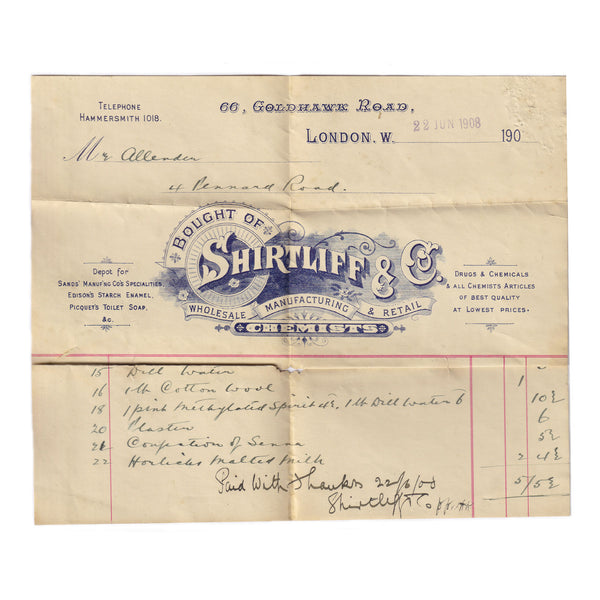 TELEPHONE
HAMMERSMITH 1018.
66, GOLDHAWK ROAD,
LONDON. W. 22 JUN 1908 190
Mr Allender
4 Pennard Road.
BOUGHT OF
SHIRTLIFF & Co.
WHOLESALE MANUFACTURING & RETAIL
CHEMISTS
DEPOT for
SANDS' MANUF'NG CO'S SPECIALITIES,
EDISON'S STARCH ENAMEL,
PICQUET'S TOILET SOAP,
&c.
DRUGS & CHEMICALS
& ALL CHEMIST'S ARTICLES
OF BEST QUALITY
AT LOWEST PRICES.
15 Dill Water 1
16 1 lb Cotton Wool 10½
18 1 pint Methylated Spirit 4½, 1 lb Dill Water 6
20 Plaster 6
Confection of Senna 5½
22 Horlicks Malted Milk 2 4½
Paid With Thanks 22/6/08 5/5½
Shirtliff & Co